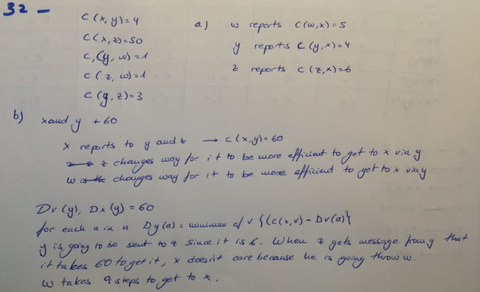 32 -
C(x,y)=4
C(x,z)=50
C(y,w)=1
C(z,w)=1
C(y,z)=3
a) w reports C(w,x)=5
y reports C(y,x)=4
z reports C(z,x)=6
b) x and y +60
x reports to y and z → c(x,y)=60
z changes way for it to be more efficient to get to x via y
w changes way for it to be more efficient to get to x via y
Dv(y), Dx(y)=60
for each a in n Dy(a) = minimum of v {(C(x,v) - Dv(a)}
y is going to be sent to z since it is 6. When z gets message from y that
it takes 60 to get it, x doesn't care because he is going throw w.
w takes 9 steps to get to x.